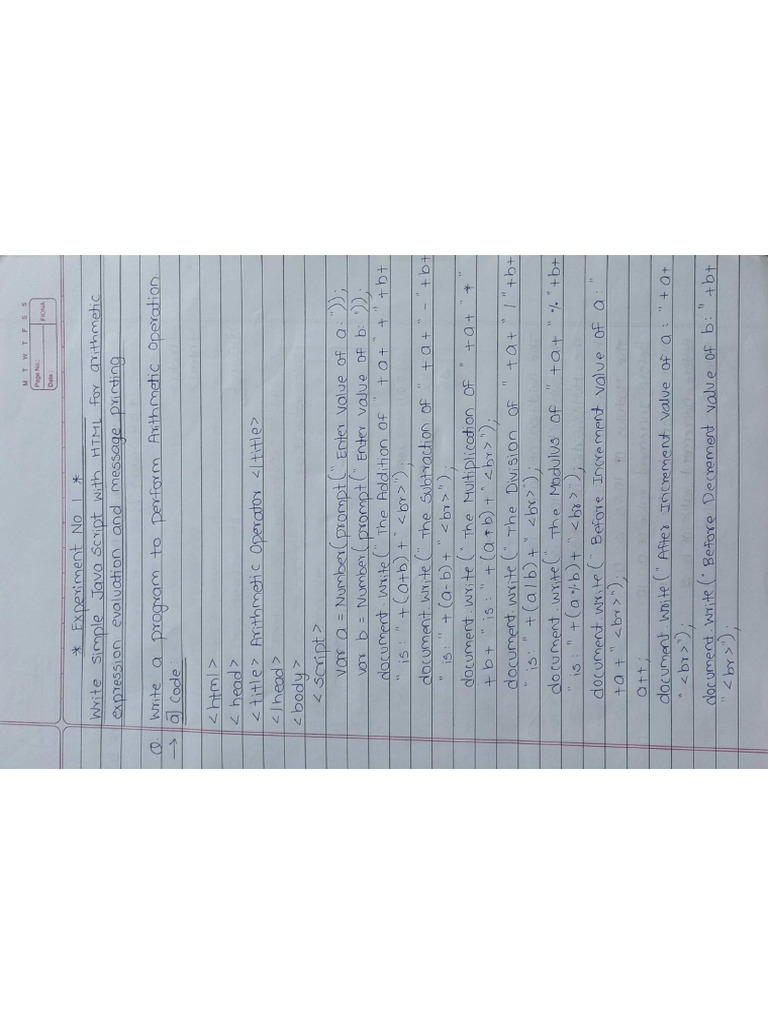 M T W T F S S
Page No.:
Date:
FIONA
* Experiment No 1 *
Write simple Java Script with HTML for arithmetic
expression evaluation and message printing
Q. Write a program to perform Arithmetic Operation
→ a] Code:
<html>
<head>
<title> Arithmetic Operator </title>
</head>
<body>
<script>
var a = Number(prompt(" Enter value of a: "));
var b = Number(prompt(" Enter value of b: "));
document.write(" The Addition of " +a+ " + " +b+
" is: " + (a+b) + " <br>");
document.write(" The Subtraction of " +a+ " - " +b+
" is: " + (a-b) + " <br>");
document.write(" The Multiplication of " +a+ " * "
+b+ " is: " + (a*b) + " <br>");
document.write(" The Division of " +a+ " / " +b+
" is: " + (a/b) + " <br>");
document.write(" The Modulus of " +a+ " % " +b+
" is: " + (a%b) + " <br>");
document.write(" Before Increment value of a: "
+a+ " <br>");
a++;
document.write(" After Increment value of a: " +a+
" <br>");
document.write(" Before Decrement value of b: " +b+
" <br>");